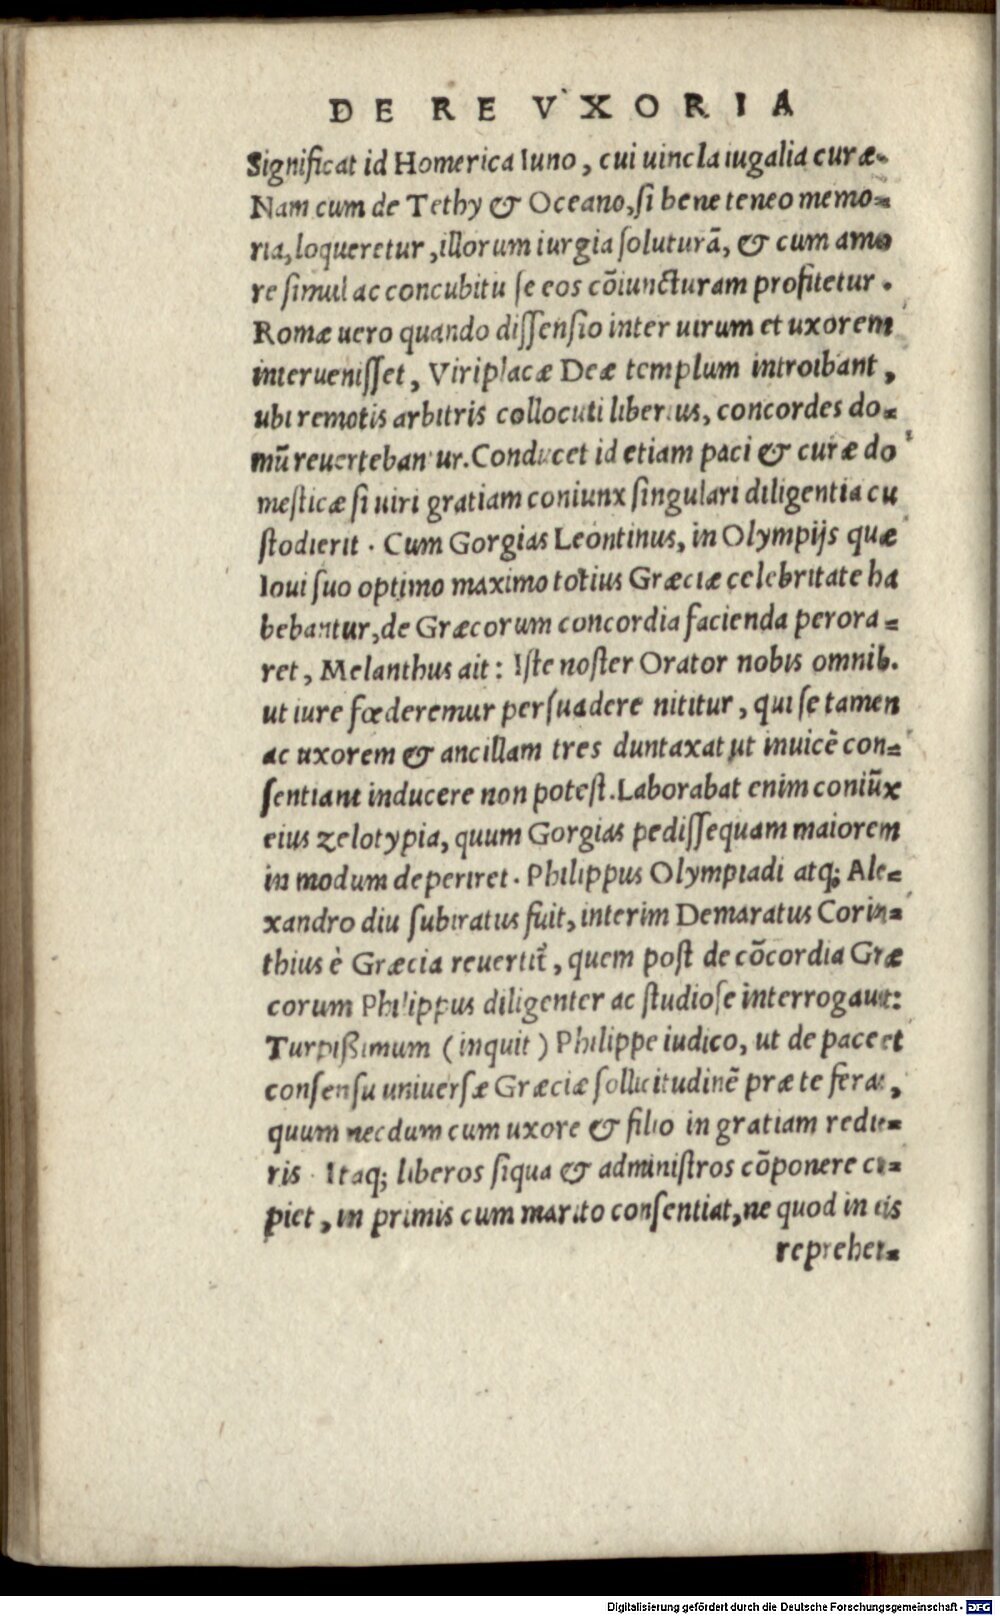 DE RE VXORIA
Significat id Homerica Iuno, cui uincla iugalia curæ.
Nam cum de Tethy & Oceano, si bene teneo memo-
ria, loqueretur, illorum iurgia soluturã, & cum amo
re simul ac concubitu se eos cõiuncturam profitetur.
Romæ uero quando dissensio inter uirum et uxorem
interuenisset, Viriplacæ Deæ templum introibant,
ubi remotis arbitris collocuti liberius, concordes do-
mũ reuertebantur. Conducet id etiam paci & curæ do
mesticæ si uiri gratiam coniunx singulari diligentia cu
stodierit. Cum Gorgias Leontinus, in Olympijs quæ
Ioui suo optimo maximo totius Græciæ celebritate ha
bebantur, de Græcorum concordia facienda perora-
ret, Melanthus ait: Iste noster Orator nobis omnib.
ut iure fœderemur persuadere nititur, qui se tamen
ac uxorem & ancillam tres duntaxat ut inuicẽ con-
sentiant inducere non potest. Laborabat enim coniũx
eius zelotypia, quum Gorgias pedissequam maiorem
in modum deperiret. Philippus Olympiadi atq; Ale-
xandro diu subiratus fuit, interim Demaratus Corin-
thius è Græcia reuertit̃, quem post de cõcordia Græ
corum Philippus diligenter ac studiose interrogauit:
Turpißimum (inquit) Philippe iudico, ut de pace et
consensu uniuersæ Græciæ sollicitudinẽ præ te feras,
quum necdum cum uxore & filio in gratiam redie-
ris. Itaq; liberos siqua & administros cõponere cu-
piet, in primis cum marito consentiat, ne quod in eis
reprehen-
Digitalisierung gefördert durch die Deutsche Forschungsgemeinschaft - DFG